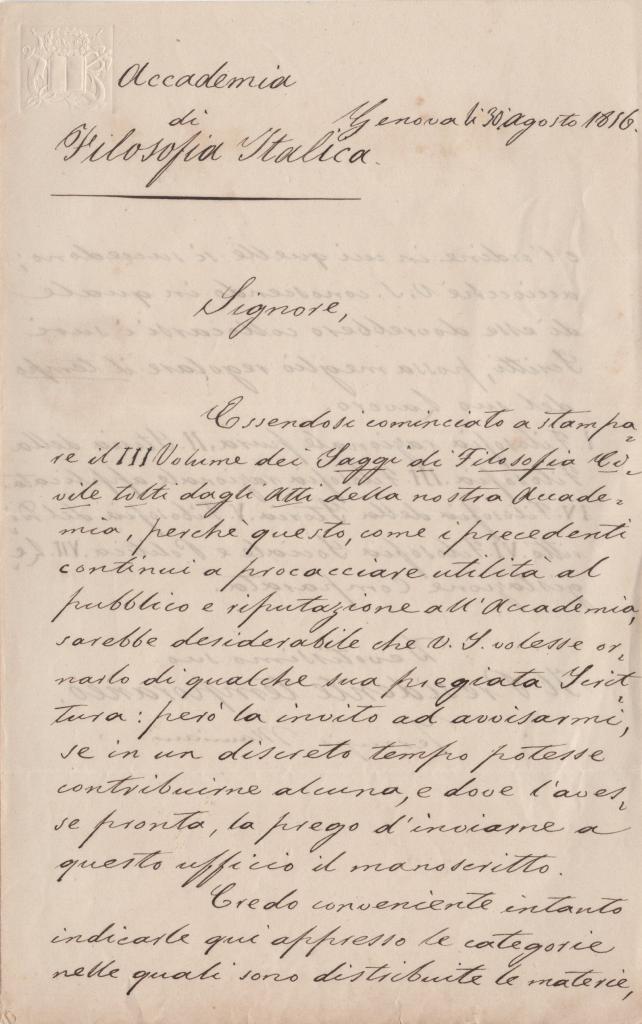 Accademia
di
Filosofia Italica.
Genova li 30 Agosto 1856.
Signore,
Essendosi cominciato a stampa-
re il III Volume dei Saggi di Filosofia Ci-
vile tolti dagli Atti della nostra Accade-
mia, perchè questo, come i precedenti
continui a procacciare utilità al
pubblico e riputazione all'Accademia,
sarebbe desiderabile che V. S. volesse or-
narlo di qualche sua pregiata Scrit-
tura: però la invito ad avvisarmi,
se in un discreto tempo potesse
contribuirne alcuna, e dove l'aves-
se pronta, la prego d'inviarne a
questo ufficio il manoscritto.
Credo conveniente intanto
indicarle qui appresso le categorie
nelle quali sono distribuite le materie,